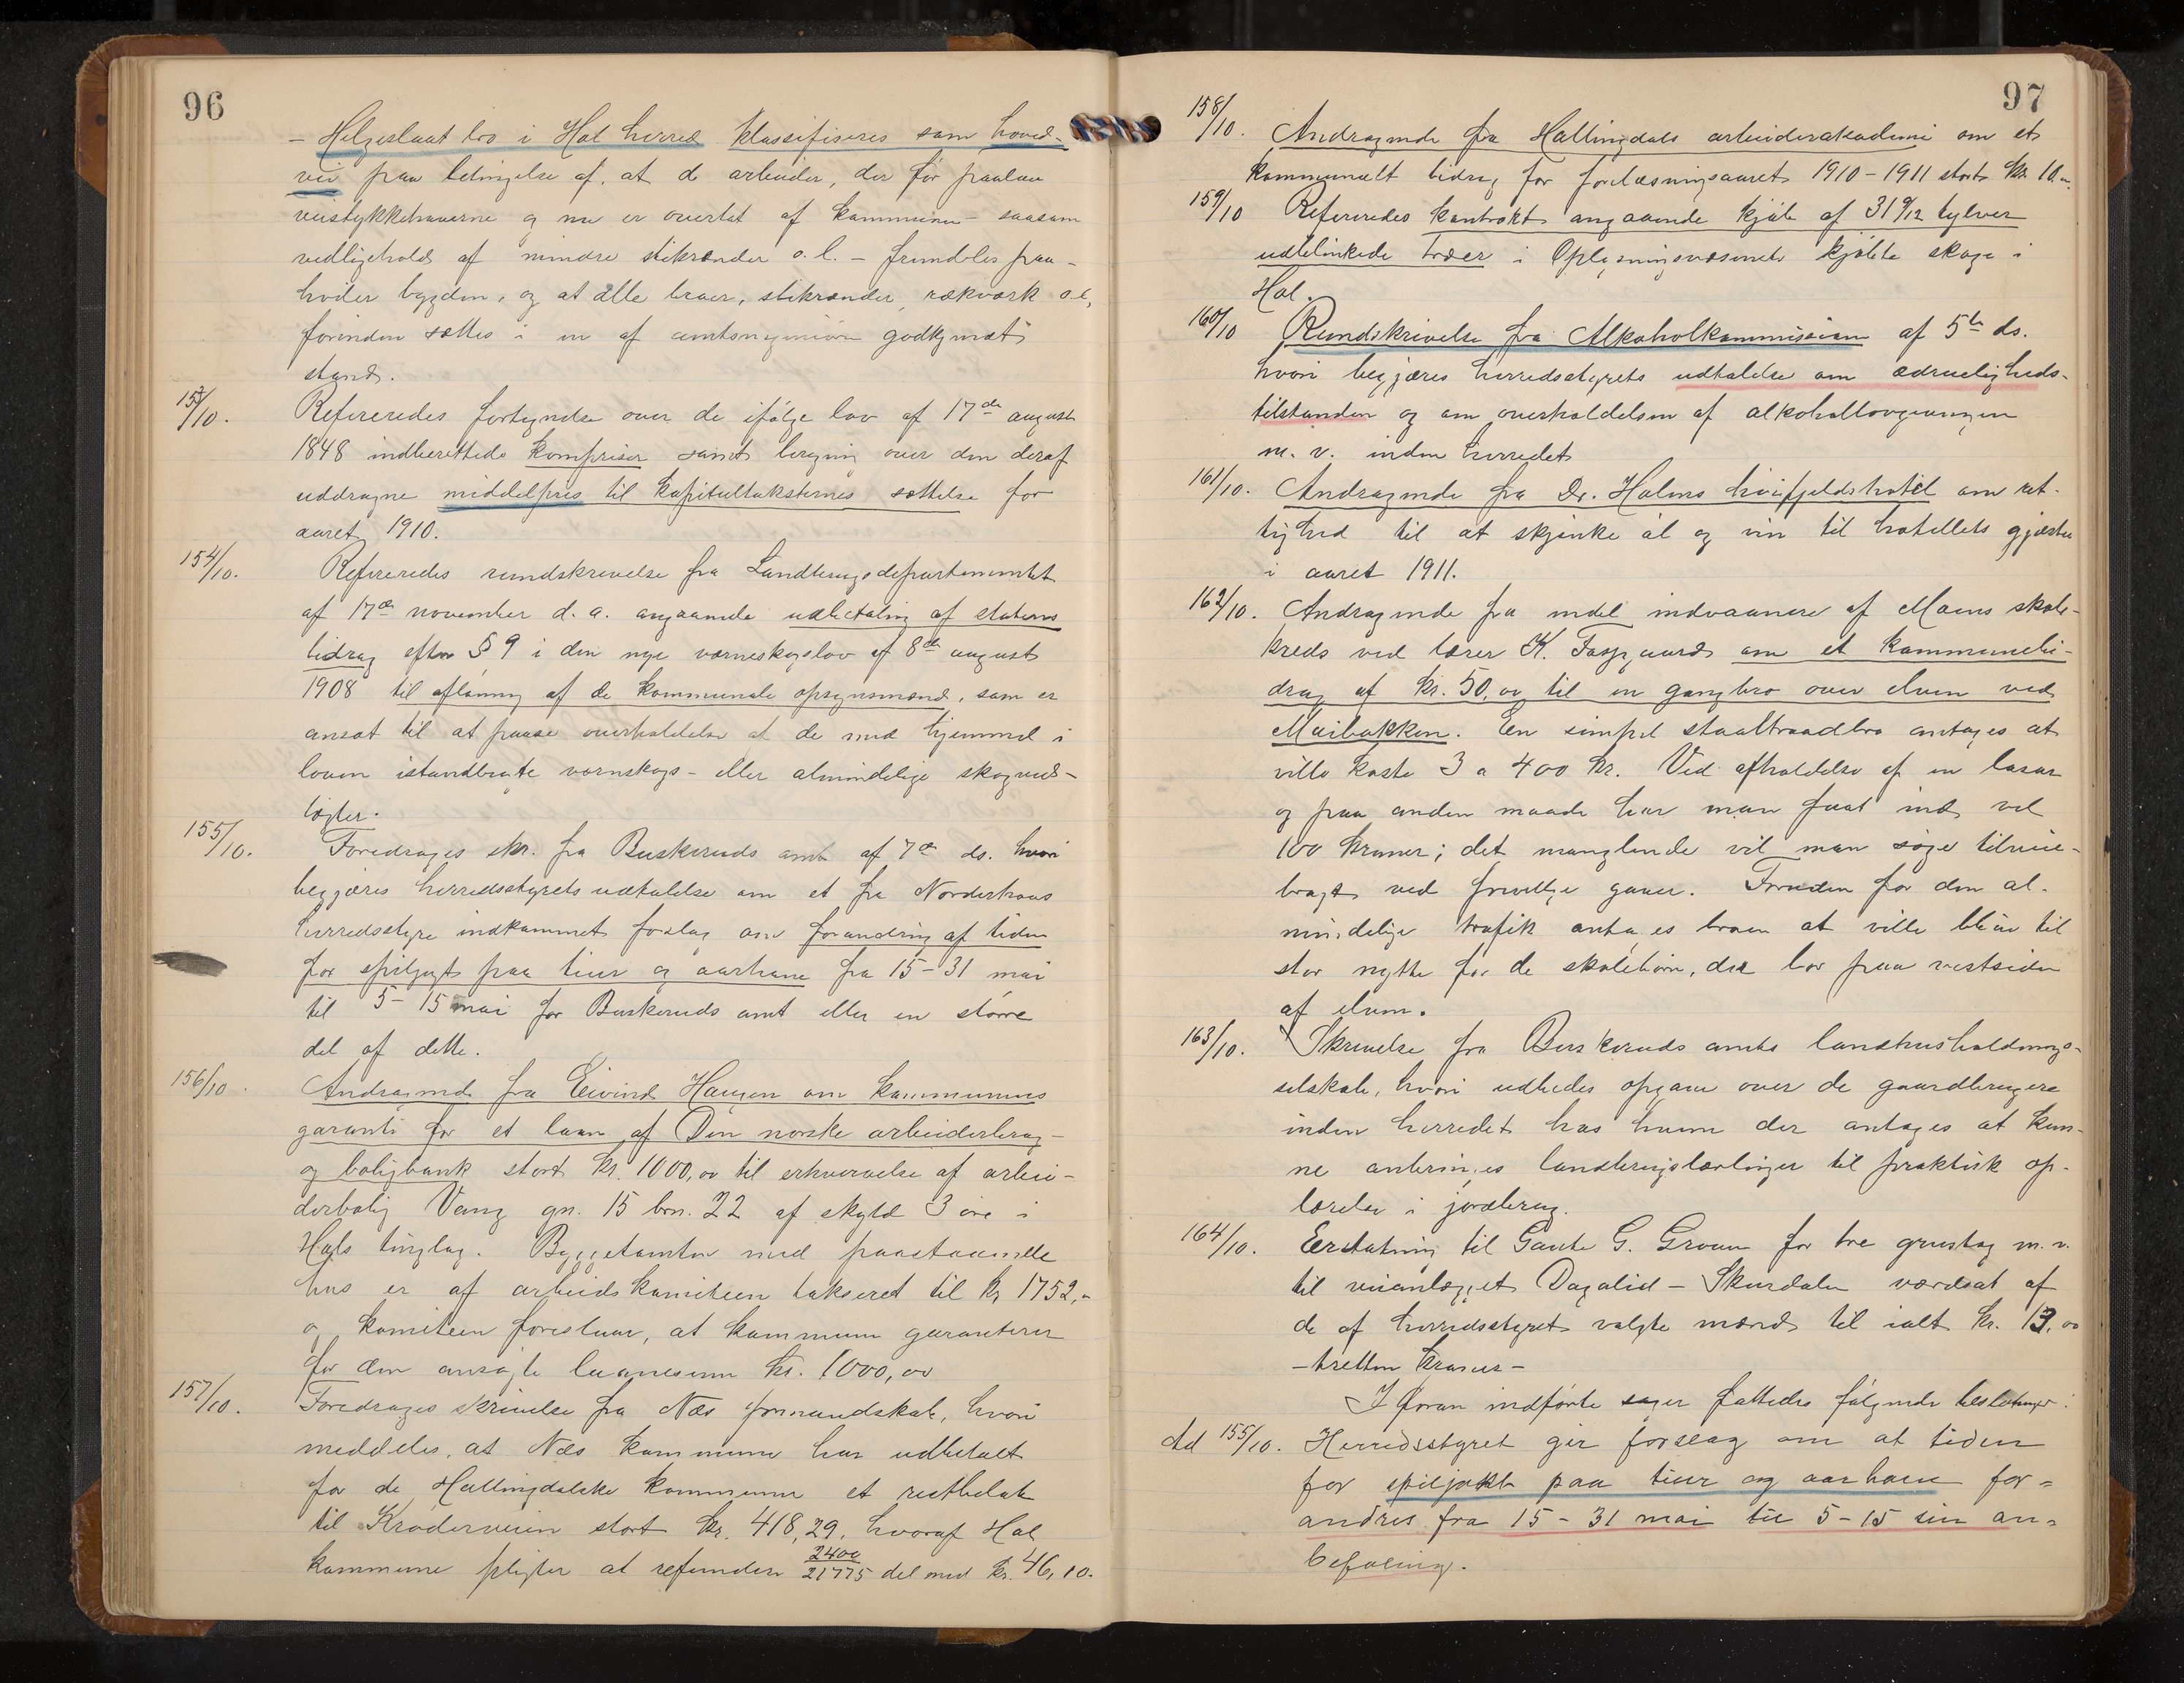 96
- Helgeslaat bro i Hol herred klassifiseres som hoved-
vei paa betingelse af, at de arbeider, der før paalaa
veistykkehaverne og nu er overtat af kommunen - saasom
vedligehold af mindre stikrender o.l. - fremdeles paa-
hviler bygden, og at alle broer, stikrender, rækværk o.l.
forinden sættes i en af amtsingeniøren godkjendt
stand.
153/10. Refereredes fortegnelse over de ifølge lov af 17de august
1848 indberettede kornpriser samt beregning over den deraf
uddragne middelpris til kapitelstaksternes sættelse for
aaret 1910.
154/10. Refereredes rundskrivelse fra Landbrugsdepartementet
af 17de november d. a. angaaende udbetaling af statens
bidrag efter § 9 i den nye verneskogslov af 8de august
1908 til aflønning af de kommunale opsynsmænd, som er
ansat til at paase overholdelse af de med hjemmel i
loven istandbragte vernskogs- eller almindelige skogved-
tægter.
155/10. Foredrages skr. fra Buskeruds amt af 7de ds. hvori
begjæres herredsstyrets udtalelse om et fra Norderhovs
herredsstyre indkommet forslag om forandring af tiden
for spiljagt paa tiur og aarhane fra 15-31 mai
til 5-15 mai for Buskeruds amt eller en større
del af dette.
156/10. Andragende fra Eivind Haugen om kommunens
garanti for et laan af Den norske arbeiderbrug-
og boligbank stort kr. 1000,00 til erhvervelse af arbei-
derbolig Vang gn. 15 brn. 22 af skyld 3 øre i
Hols tinglag. Byggetomten med paastaaende
hus er af arbeidskomiteen takseret til kr 1752,-
og komiteen foreslaar, at kommunen garanterer
for den ansøgte laanesum kr. 1000,00
157/10. Foredrages skrivelse fra Næs formandskab, hvori
meddeles, at Næs kommune har udbetalt
for de Hallingdalske kommuner et restbeløb
til Krøderveien stort kr. 418,29, hvoraf Hol
kommune pligter at refundere 2400/21775 del med kr. 46,10.
97
158/10. Andragende fra Hallingdals arbeiderakademi om et
kommunalt bidrag for forelæsningsaaret 1910-1911 stort kr. 10.
159/10 Refereredes kontrakt angaaende kjøb af 31 9/12 tylvter
udblinkede trær i Oplysningsvæsenets kjøbte skoge i
Hol.
160/10 Rundskrivelse fra Alkoholkommissionen af 5te ds.
hvori begjæres herredsstyrets udtalelse om ædrueligheds-
tilstanden og om overholdelsen af alkohollovgivningen
m. v. inden herredet
161/10. Andragende fra Dr. Holms høifjeldshotel om ret-
tighed til at skjenke øl og vin til hotellets gjæster
i aaret 1911.
162/10. Andragende fra endel indvaanere af Moens skole-
kreds ved lærer K. Fosgaard om et kommunebi-
drag af kr. 50,00 til en gangbro over elven ved
Maibakken. En simpel staaltraadbro antages at
ville koste 3 a 400 kr. Ved afholdelse af en basar
og paa anden maade har man faat ind vel
100 kroner; det manglende vil man søge tilveie-
bragt ved frivillige gaver. Foruden for den al-
mindelige trafik antages broen at ville blive til
stor nytte for de skolebørn, der bor paa vestsiden
af elven.
163/10. Skrivelse fra Buskeruds amts landhusholdnings-
selskab, hvori udbedes opgave over de gaardbrugere
inden herredet hos hvem der antages at kun-
ne anbringes landbrugslærlinger til praktisk op-
lærelse i jordbrug.
164/10. Erstatning til Gaute G. Groven for tre grustag m. v.
til veianlægget Dagalid - Skurdalen værdsat af
de af herredsstyret valgte mænd til ialt kr. 13,00
- tretten kroner -
I foran indførte sager fattedes følgende beslutninger:
Ad 155/10. Herredsstyret gir forslag om at tiden
for spiljakt paa tiur og aarhane for=
andres fra 15-31 mai til 5-15 sin an=
befaling.